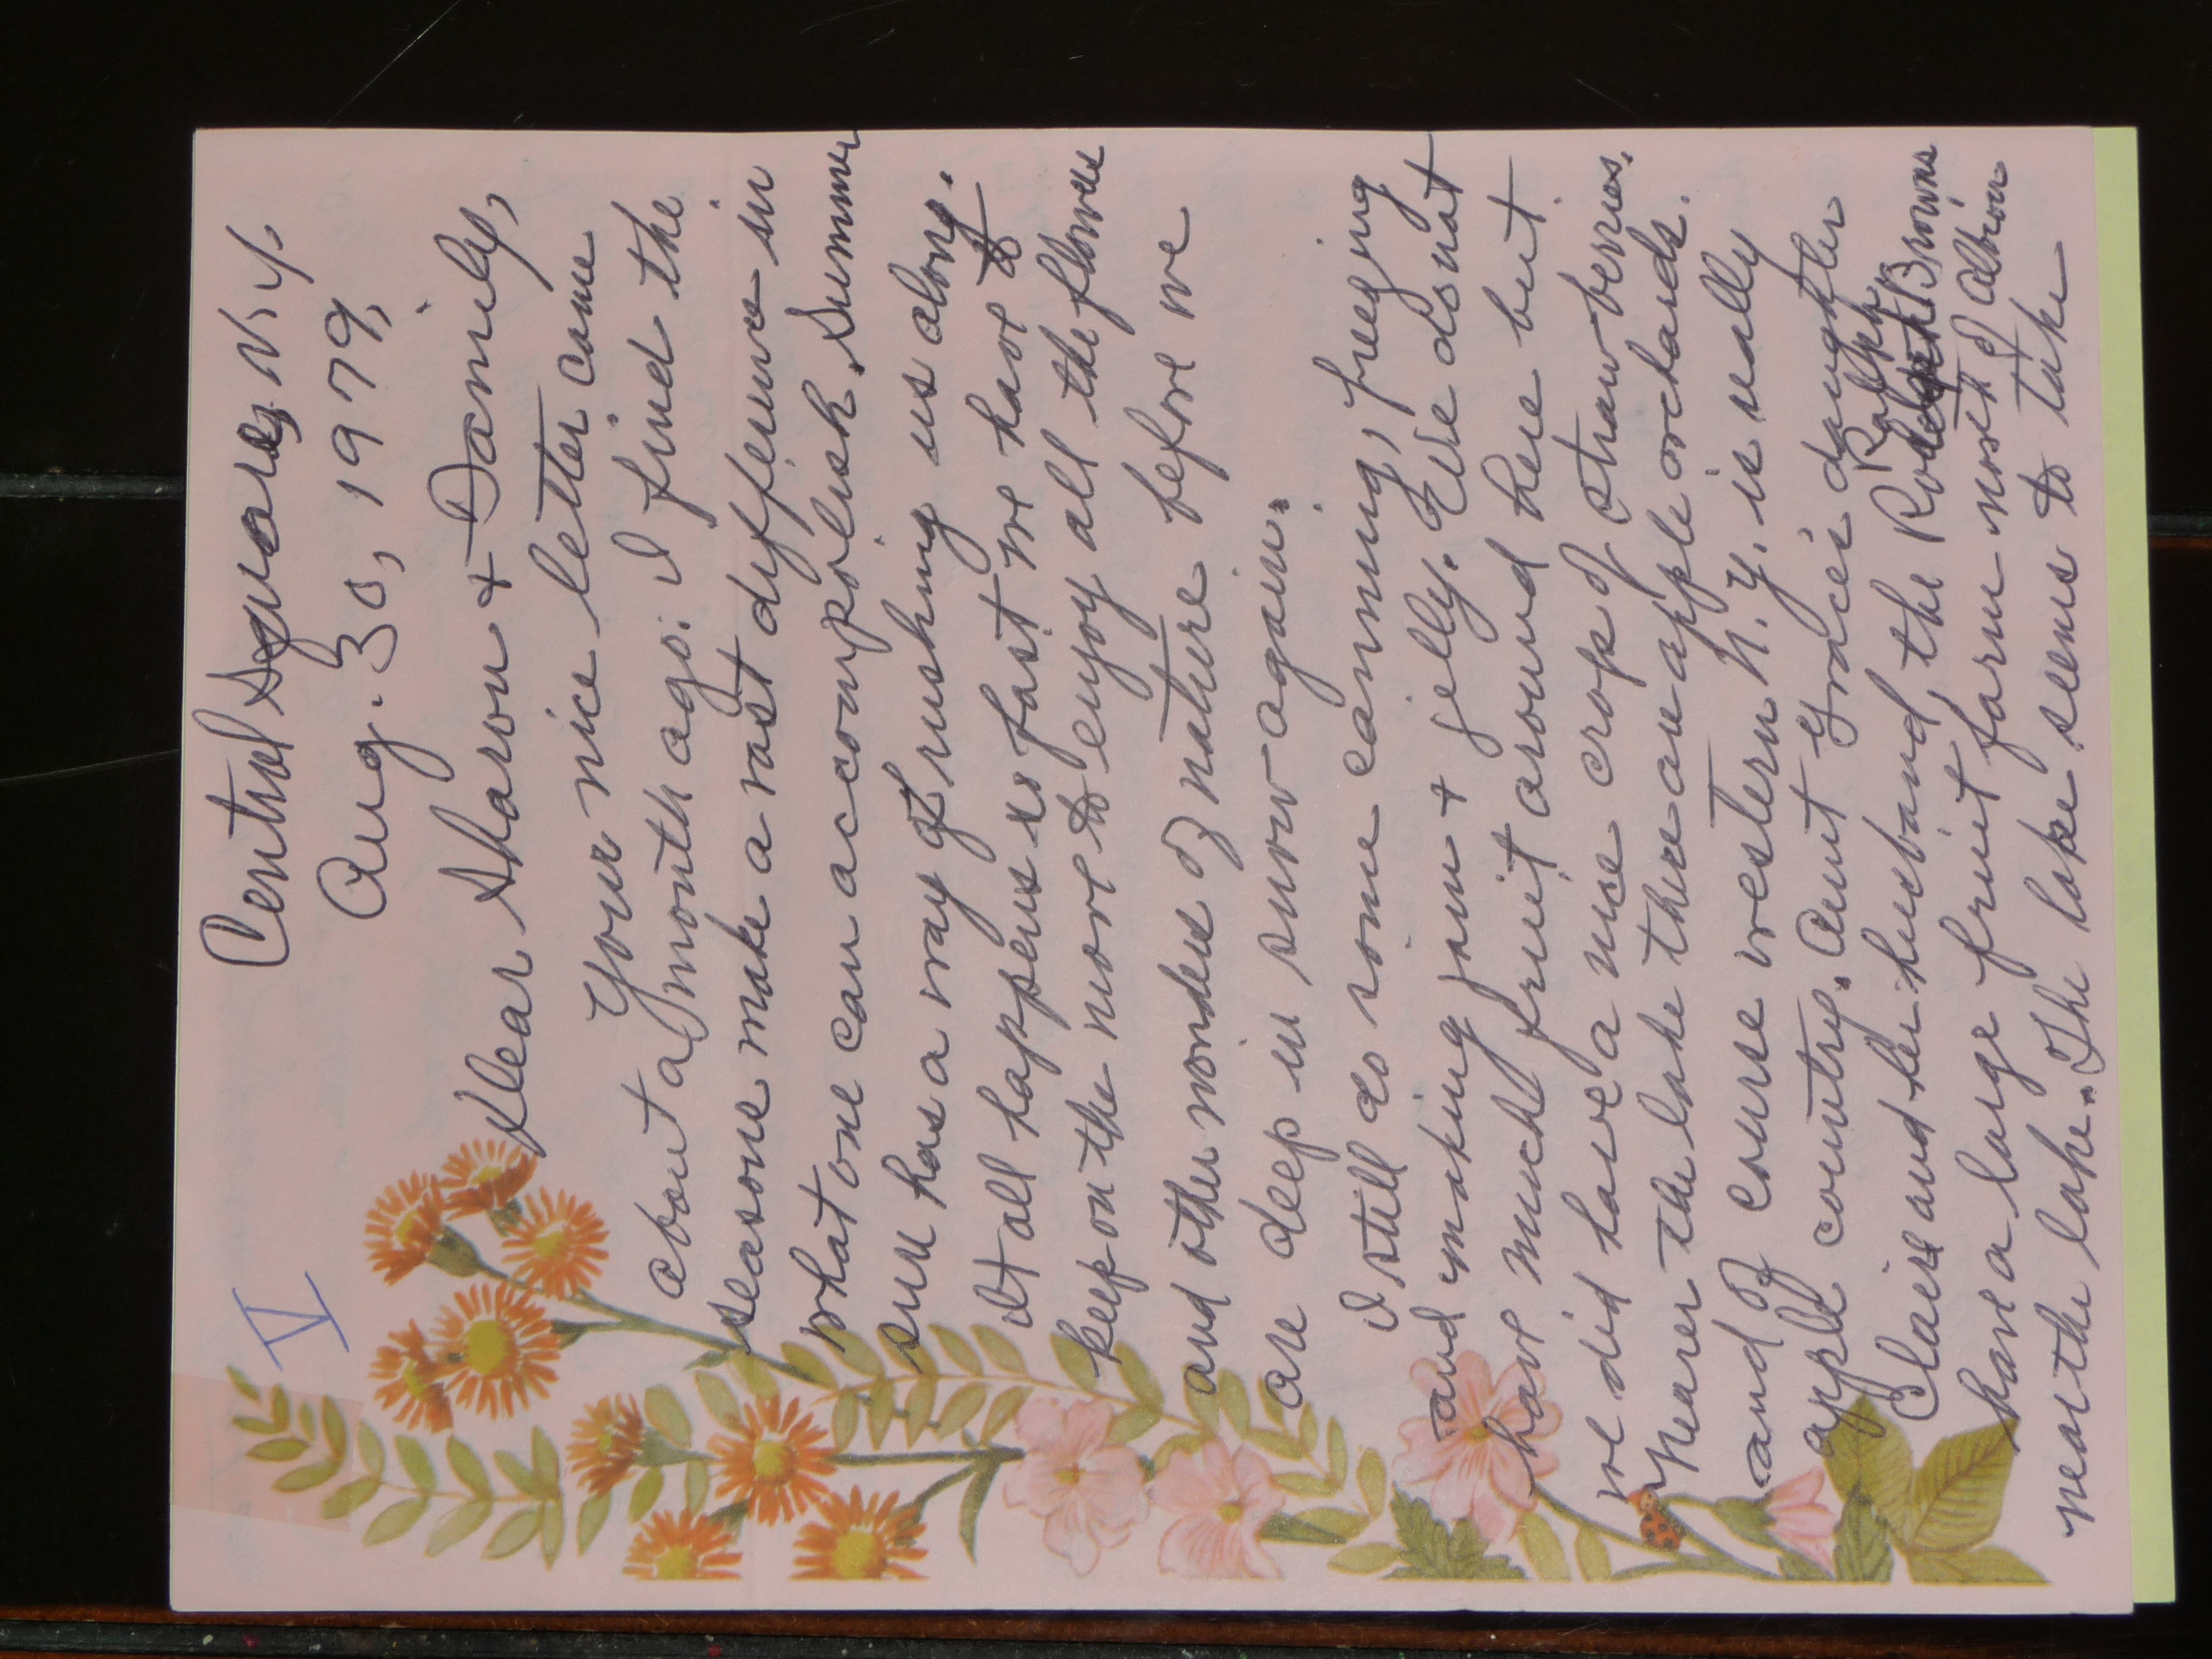 V
Central Square, N.Y.
Aug. 30, 1979,
Dear Sharon & Family,
Your nice letter came
about a month ago. I find the
seasons make a vast difference in
what one can accomplish. Summer
sure has a way of rushing us along.
It all happens so fast we have to
keep on the move to enjoy all the flowers
and other wonders of nature before we
are deep in snow again.
I still do some canning, freezing
and making jam & jelly. We do not
have much fruit around here but
we did have a nice crop of strawberries.
Nearer the lake there are apple orchards.
and of course western N.Y. is really
apple country. Aunt Grace's daughter
Claire and her husband, the Ralph Browns
have a large fruit farm north of Albion
near the lake. The lake seems to take